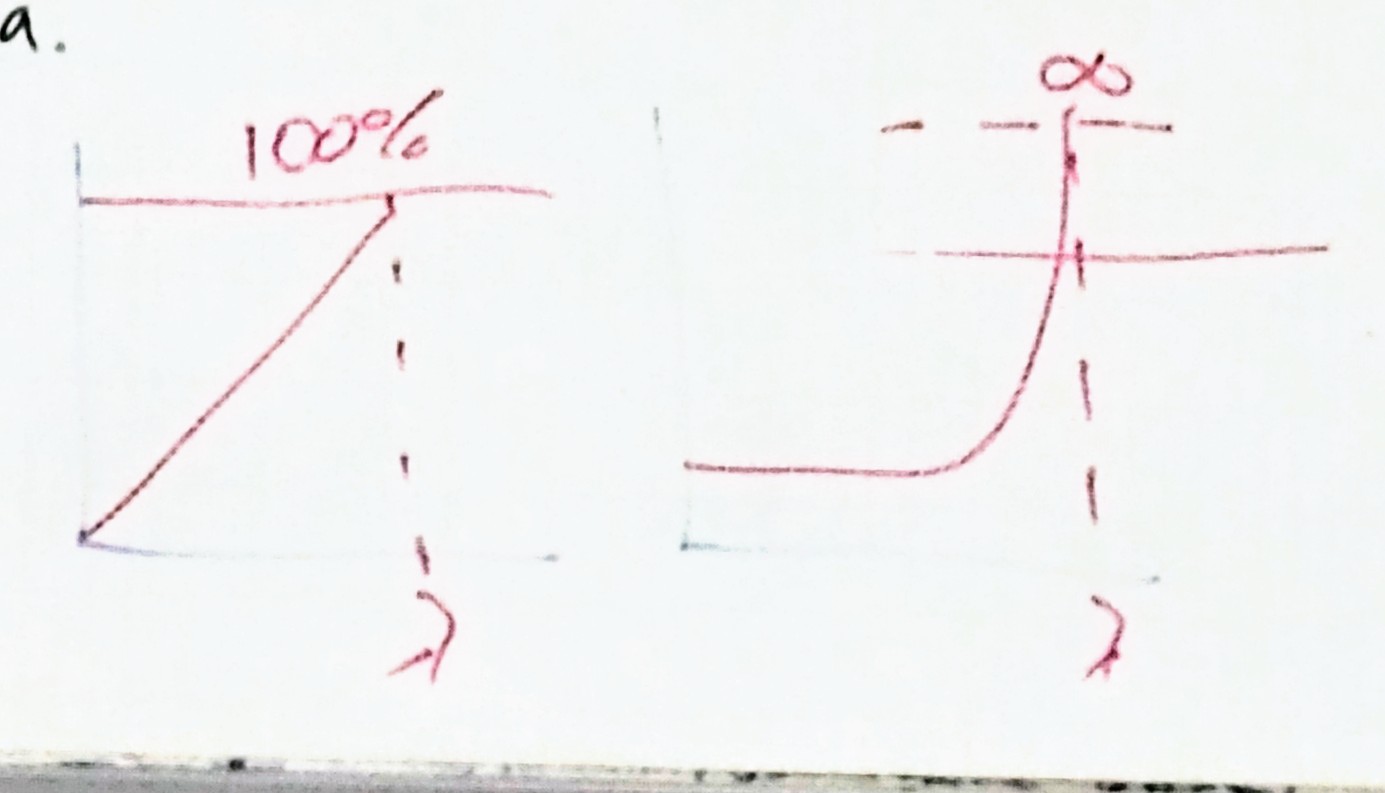 a.
100%
∞
λ
λ